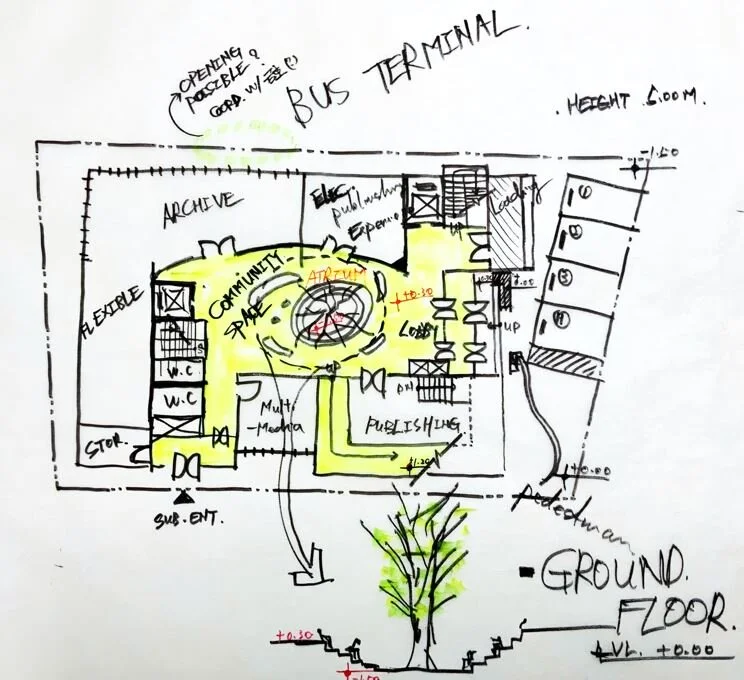 OPENING
POSSIBLE?
COORD. W/
BUS TERMINAL.
. HEIGHT 5.00M.
-1.50
ARCHIVE
ELEC.
Publishing
Experience
UP
Loading
1
2
3
4
FLEXIBLE
COMMUNITY
SPACE
ATRIUM
+0.30
LOBBY
UP
W.C
W.C
UP
DN
Multi
-Media
PUBLISHING.
STOR.
SUB.ENT.
±0.00
pedestrian
GROUND.
FLOOR.
LVL. +0.00
+0.30